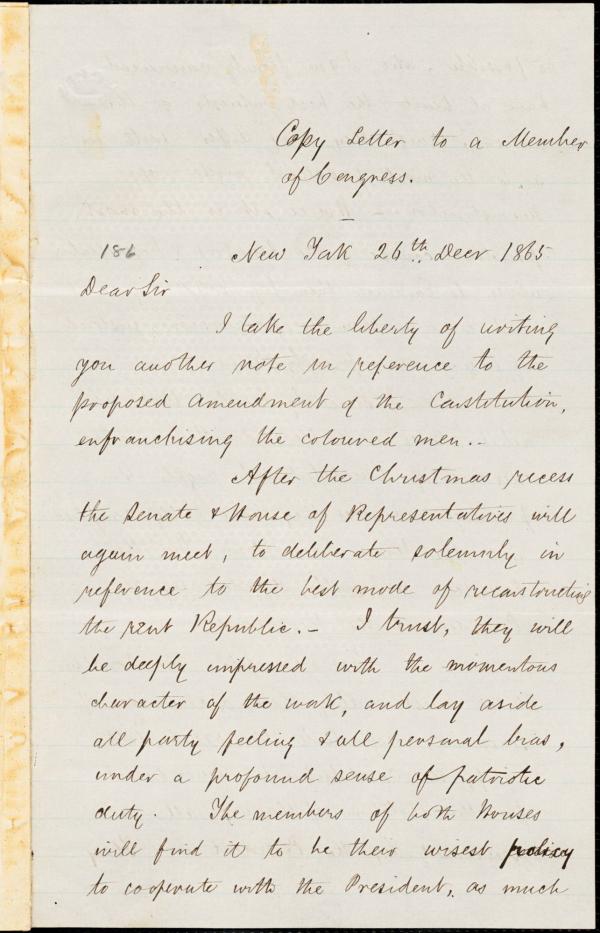 Copy Letter to a Member
of Congress.
186
New York 26th Decr 1865
Dear Sir
I take the liberty of writing
you another note in reference to the
proposed amendment of the Constitution,
enfranchising the coloured men.-
After the Christmas recess
the Senate & House of Representatives will
again meet, to deliberate solemnly in
reference to the best mode of reconstructing
the rent Republic.- I trust, they will
be deeply impressed with the momentous
character of the work, and lay aside
all party feeling & all personal bias,
under a profound sense of patriotic
duty. The members of both Houses
will find it to be their wisest policy
to cooperate with the President, as much